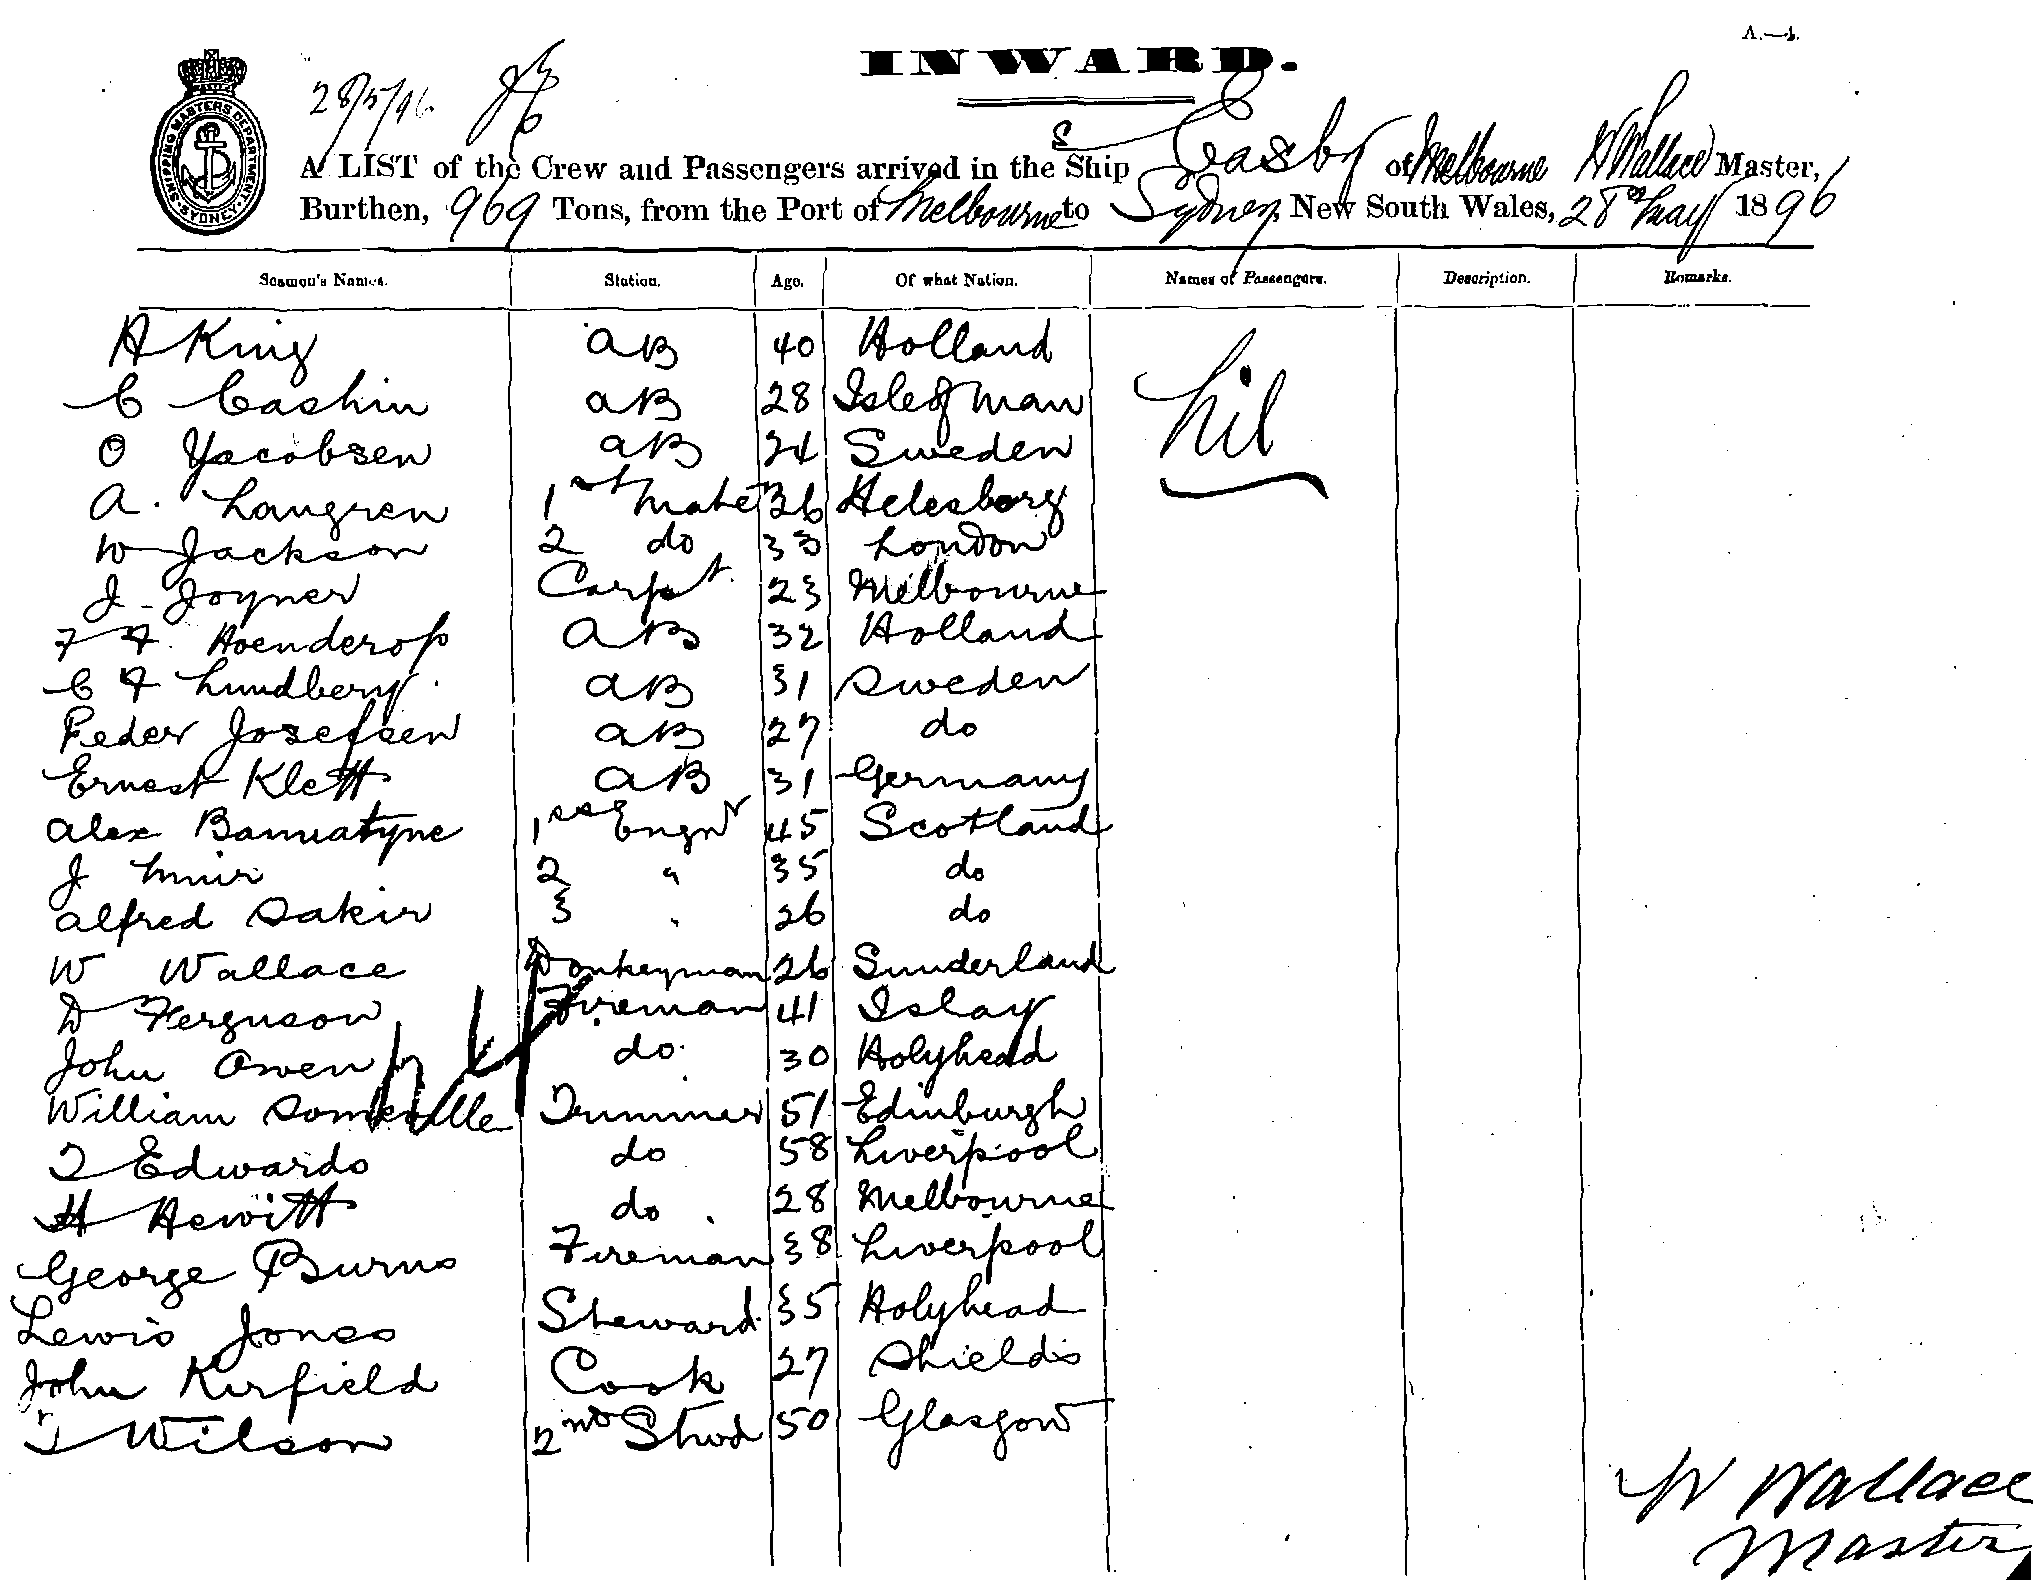 A.—4.
INWARD.
28/5/96
SHIPPING MASTERS DEPARTMENT SYDNEY
A LIST of the Crew and Passengers arrived in the S Ship Easby of Melbourne W Wallace Master,
Burthen, 969 Tons, from the Port of Melbourne to Sydney New South Wales, 28th May 1896
Seamen's Names. Station. Age. Of what Nation. Names of Passengers. Description. Remarks.
A King AB 40 Holland Nil
C Cashin AB 28 Isle of Man
O Yacobsen AB 24 Sweden
A. Langren 1st Mate 36 Helesborg
W Jackson 2 do 33 London
J. Joyner Carpt. 23 Melbourne
F F Hoenderop AB 32 Holland
C F Lundberg AB 31 Sweden
Peder Josefsen AB 27 do
Ernest Klett AB 31 Germany
Alex Bannatyne 1st Engnr 45 Scotland
J Muir 2 " 35 do
Alfred Dakir 3 " 26 do
W Wallace Donkeyman 26 Sunderland
D Ferguson Fireman 41 Islay
John Owen do 30 Holyhead
William Somerville Trimmer 51 Edinburgh
T Edwards do 58 Liverpool
H Hewitt do 28 Melbourne
George Burns Fireman 38 Liverpool
Lewis Jones Steward 35 Holyhead
John Kirfield Cook 27 Shields
T Wilson 2nd Stwd 50 Glasgow
W Wallace
Master